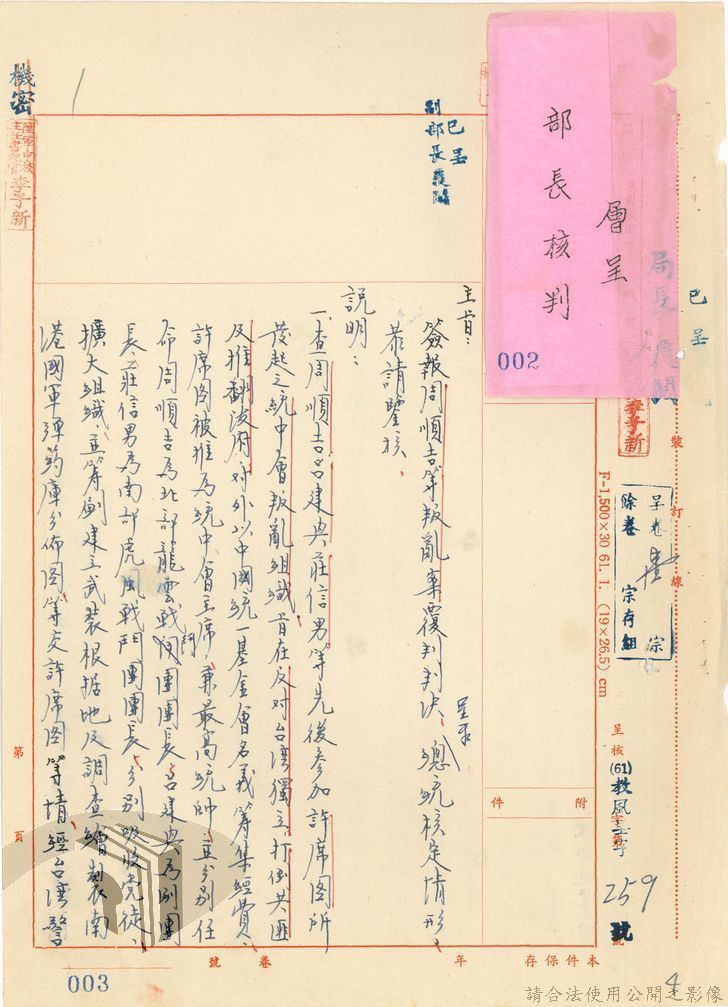 機密
李子新
已呈
副部長
層呈
部長核判
002
局長
已呈
李子新
裝訂線
呈卷壹宗
餘卷宗存組
F-1,500×30 61. 1. (19×26.5) cm
呈核(61)教風字第259號
附件
主旨:
簽報周順吉等叛亂案覆判判決,呈奉總統核定情形,
恭請鑒核。
說明:
一、查周順吉呂建興莊信男等先後參加許席圖所
發起之統中會叛亂組織,旨在反对台湾獨立,打倒共匪
及推翻政府,对外以中國統一基金會名義籌集經費、
許席图被推為統中會主席兼最高統帥,並分別任
命周順吉為北部龍雲戰鬥團團長、呂建興為副團
長、莊信男為南部虎風戰鬥團團長,分別吸收党徒、
擴大組織、並筹劃建立武装根据地及調查繪製南
港國軍弹药庫分佈图等交許席图等情,經台湾警
第 頁
本件保存 年
卷 號
003
4
請合法使用公開之影像